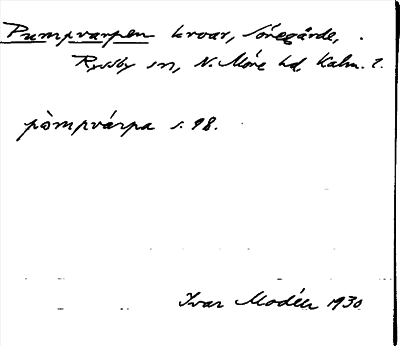 Pumpvarpen kvar, Söregärde,
Ryssby sn, N. Möre hd, Kalm. l.
pòmpvárpa s. 98.
Ivar Modéer 1930